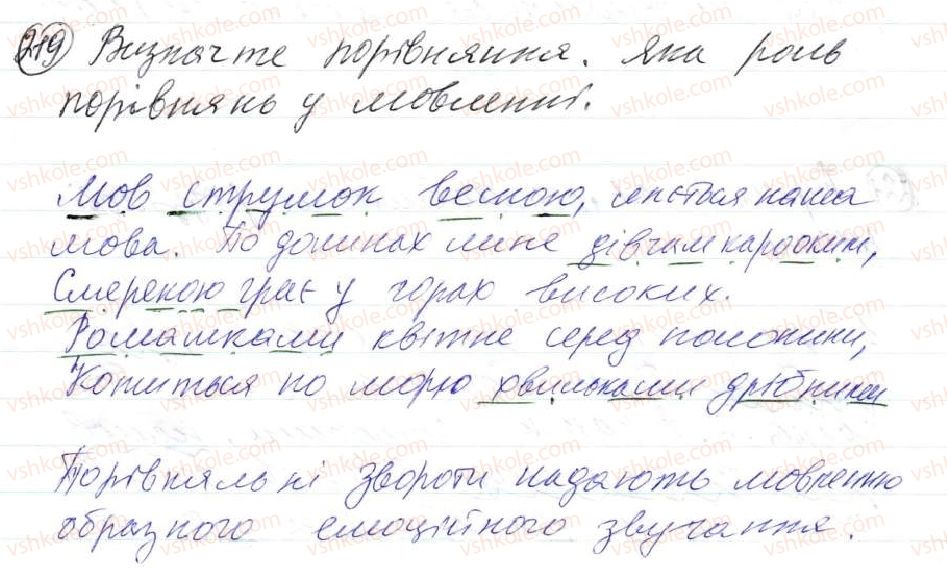 219 Визначте порівняння. Яка роль
порівнянь у мовленні.
Мов струмок весною, ллється наша
мова. По долинах лине дівчам карооким,
Смерекою грає у горах високих.
Ромашками квітне серед полонини,
Котиться по морю хвильками дрібними
Порівняльні звороти надають мовленню
образного емоційного звучання.